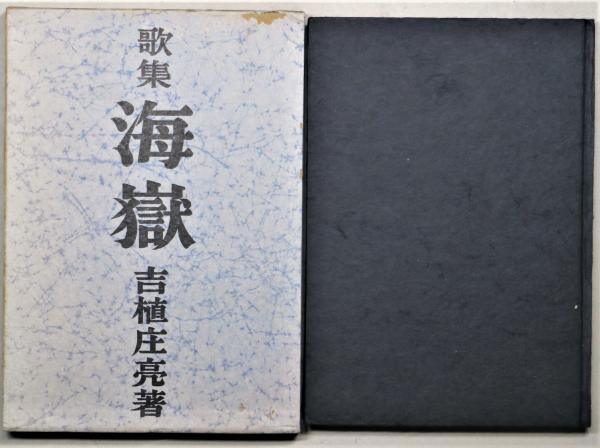 歌集
海嶽
吉植庄亮著